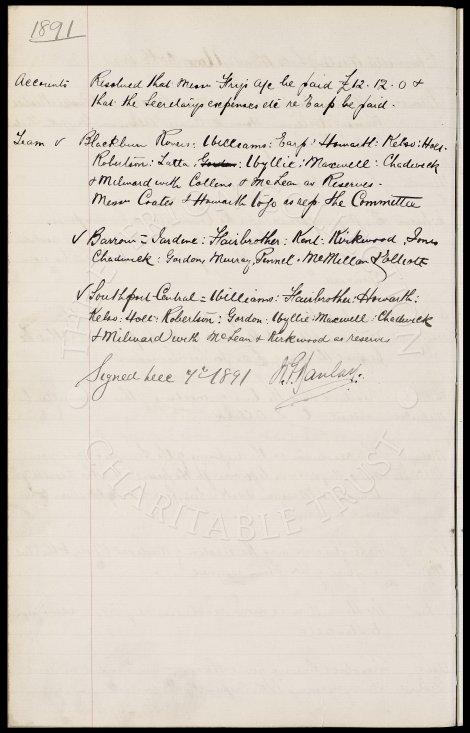 1891
Accounts Resolved that Messrs a/c be paid £12.12.0 &
that the Secretarys expenses etc re Earp be paid.
Team v Blackburn Rovers: Williams: Earp: Howarth: Kelso: Holt:
Robertson: Latta: Gordon: Wyllie: Maxwell: Chadwick
& Milward with Collins & McLean as Reserves.
Messrs Coates & Howarth to go as rep the Committee
v Barrow = Jardine: Fairbrother: Kent: Kirkwood, Jones
Chadwick: Gordon, Murray, Pinnel, McMillan & Elliott
v Southport Central = Williams: Fairbrother: Howarth:
Kelso: Holt: Robertson: Gordon: Wyllie: Maxwell: Chadwick
& Milward with McLean & Kirkwood as reserves
Signed Dec 7th 1891
CHARITABLE TRUST